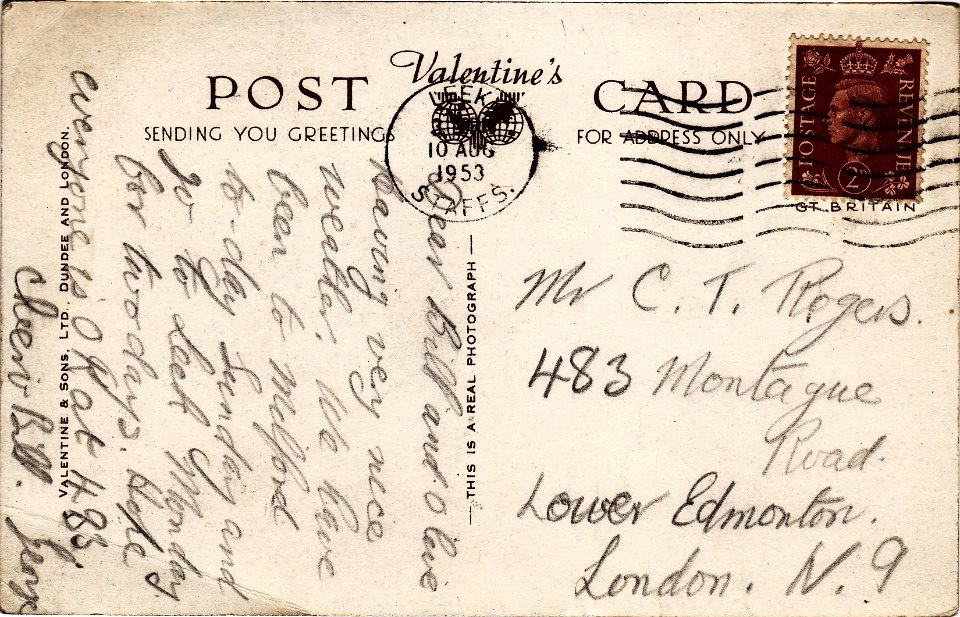 POST
Valentine's
CARD
SENDING YOU GREETINGS
FOR ADDRESS ONLY
LEEK
10 AUG
1953
STAFFS.
POSTAGE
REVENUE
2D
GT. BRITAIN
Dear Bill and Olive
having very nice
weather. We have
been to Milford
to-day Sunday and
go to Leek Monday
for two days. Hope
everyone is O K at 483
Cheerio Bill. George
VALENTINE & SONS, LTD., DUNDEE AND LONDON.
THIS IS A REAL PHOTOGRAPH
Mr C. T. Rogers.
483 Montague
Road.
Lower Edmonton.
London. N. 9